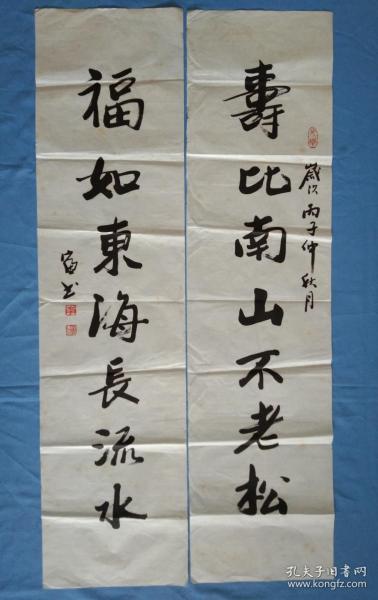 壽比南山不老松
歲次丙子仲秋月
福如東海長流水
孔夫子旧书网
www.kongfz.com